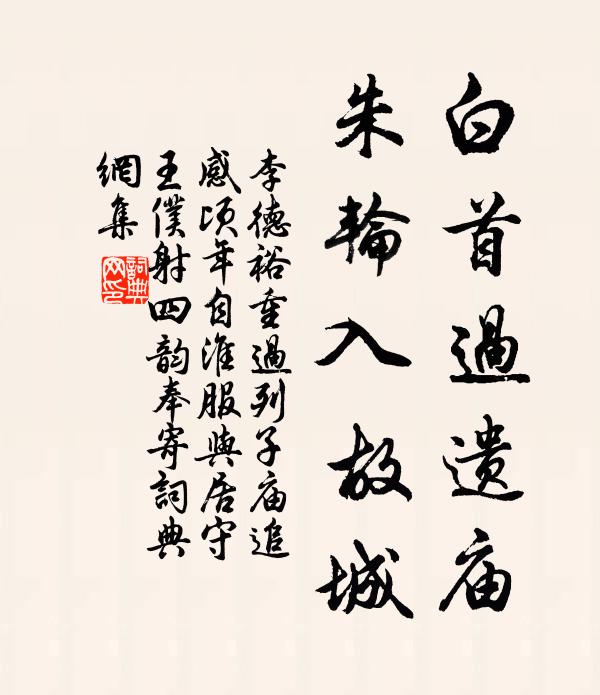 白首過遗庙
朱輪入故城
李德裕重過列子庙追
感頃年自淮服與居守
王僕射四韵奉寄詞典
網集
詞典網印